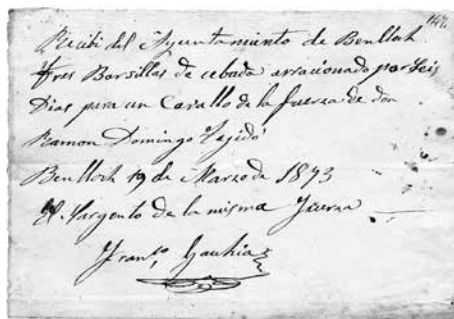 Recibi del Ayuntamiento de Benlloch
tres Barsillas de cebada arracionado por seis
Dias para un Cavallo de la fuerza de don
Ramon Domingo Tejidó
Benlloch 19 de Marzo de 1873
El Sargento de la misma Fuerza
Fran.co